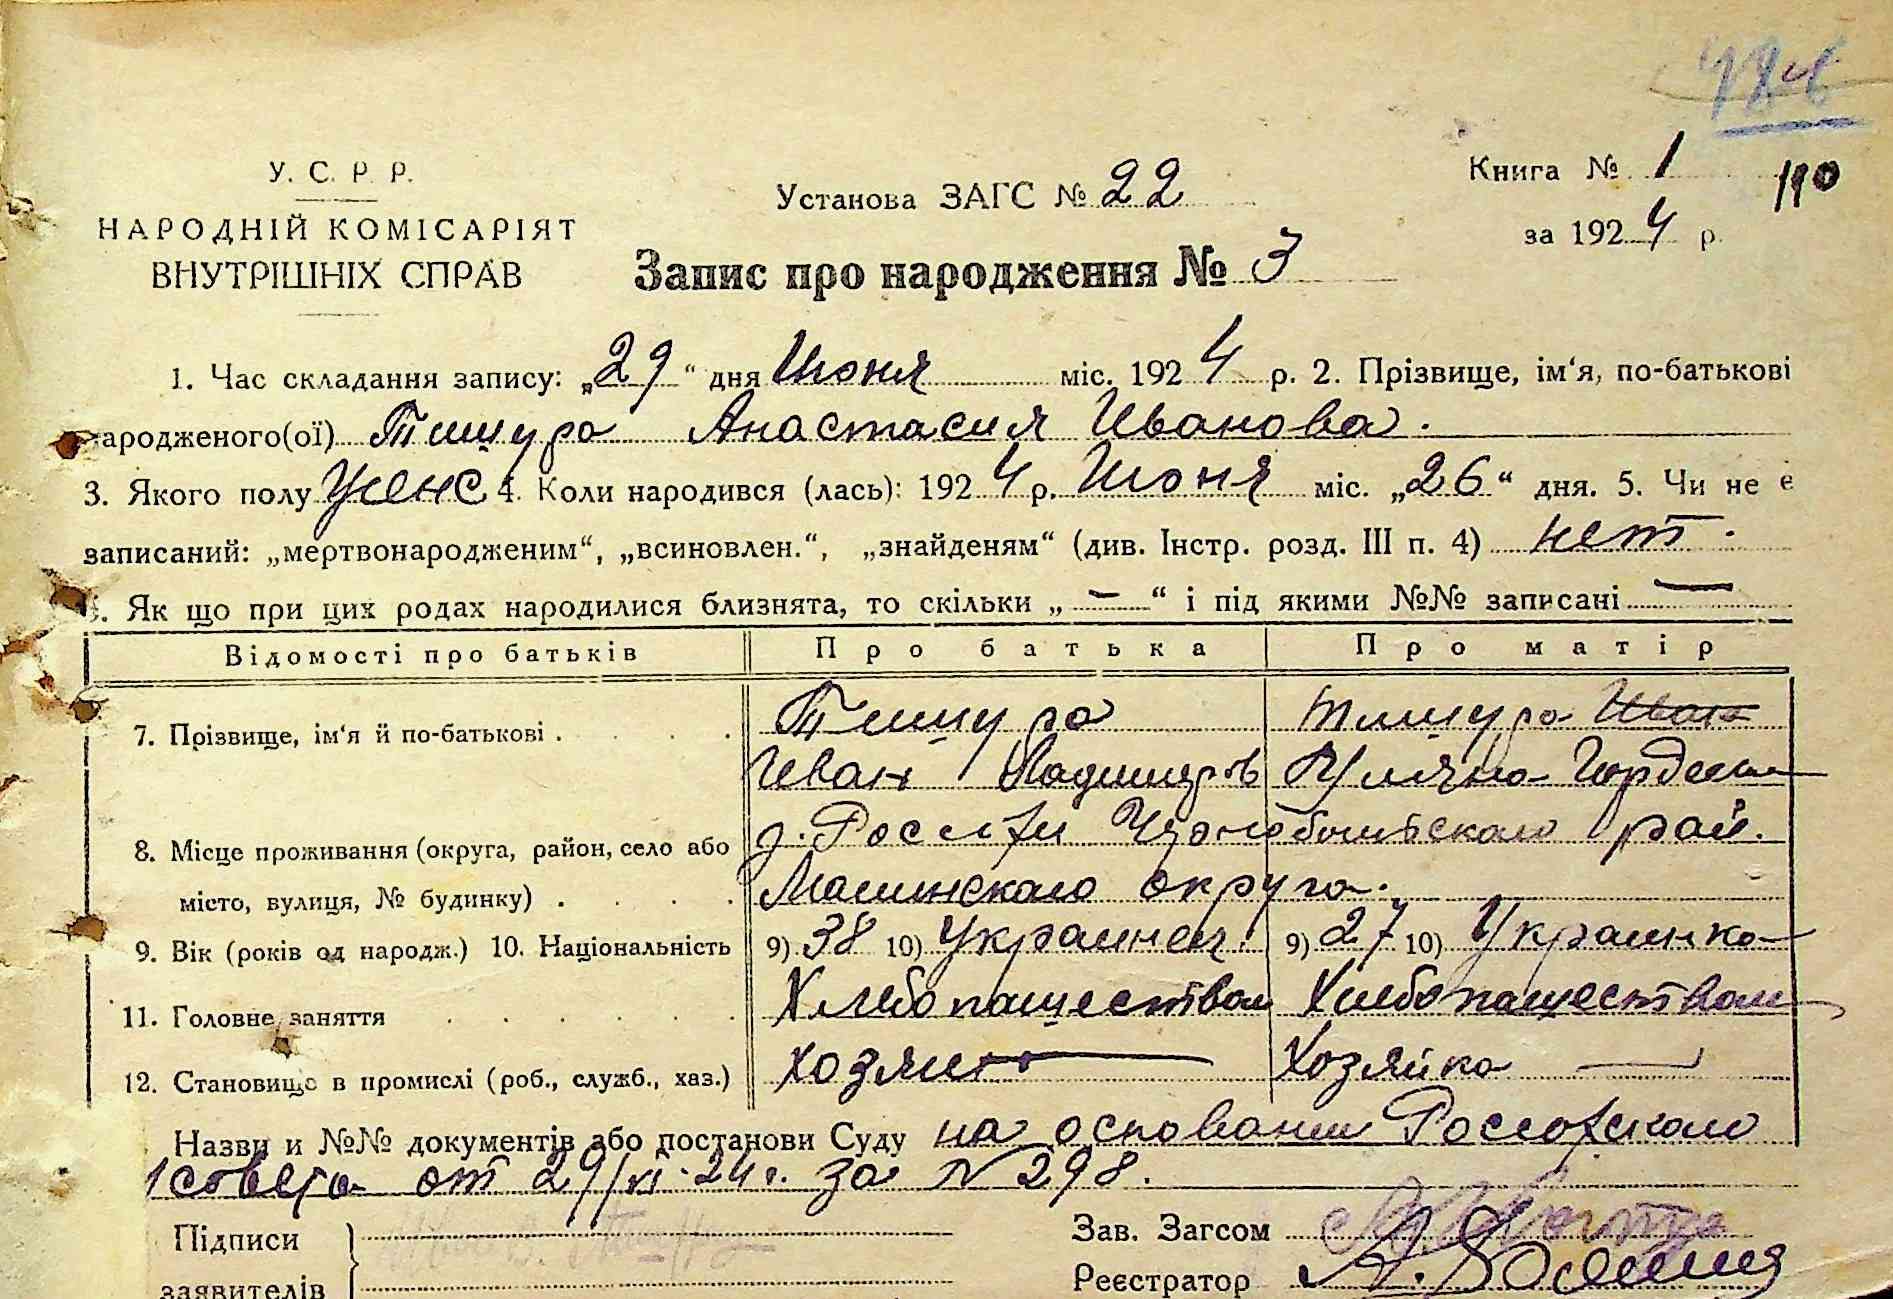 У. С. Р. Р.
НАРОДНІЙ КОМІСАРІЯТ
ВНУТРІШНІХ СПРАВ
Установа ЗАГС № 22
Книга № 1 110
за 1924 р.
Запис про народження № 3
1. Час складання запису: „29“ дня Июня міс. 1924 р. 2. Прізвище, ім‘я, по-батькові
народженого(ої) Тишура Анастасия Иванова.
3. Якого полу Женс 4. Коли народився (лась): 1924 р. Июня міс. „26“ дня. 5. Чи не є
записаний: „мертвонародженим“, „всиновлен.“, „знайденям“ (див. Інстр. розд. III п. 4) нет.
6. Як що при цих родах народилися близнята, то скільки „ — “ і під якими №№ записані —
Відомості про батьків Про батька Про матір
7. Прізвище, ім‘я й по-батькові . Тишура Тишура Иван
Иван Гордеева
8. Місце проживання (округа, район, село або рай.
місто, вулиця, № будинку) . округа.
9. Вік (років од народж.) 10. Національність 9) 38 10) Украинец. 9) 27 10) Украинка
11. Головне заняття Хлебопашеством Хлебопашеством
12. Становище в промислі (роб., служб., хаз.) хозяин Хозяйка
Назви и №№ документів або постанови Суду на основании
совета от 29/VI-24 г. за N 298.
Підписи
заявителів
Зав. Загсом
Реєстратор